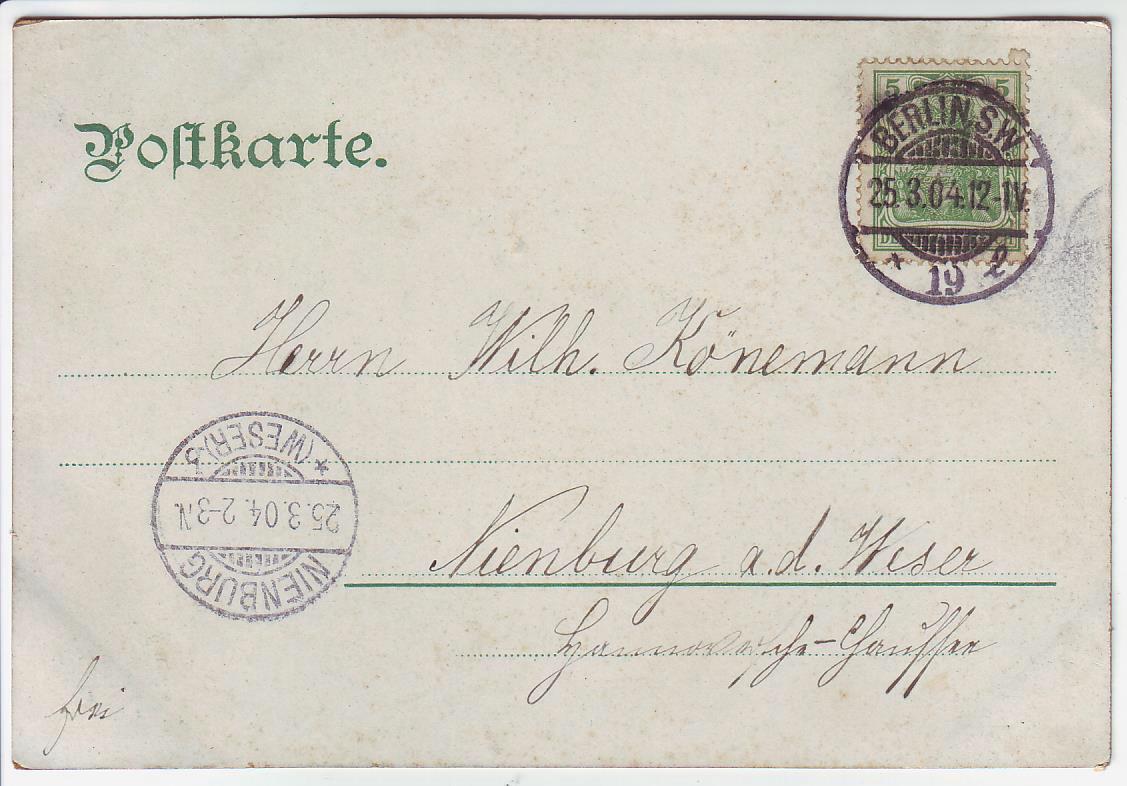 Postkarte.
5 5
BERLIN S.W.
25.3.04.12-1N.
* 19 l
Herrn Wilh. Könemann
NIENBURG
25.3.04. 2-3N.
* (WESER).
Nienburg a.d. Weser
Hannoversche-Chaussee
frei